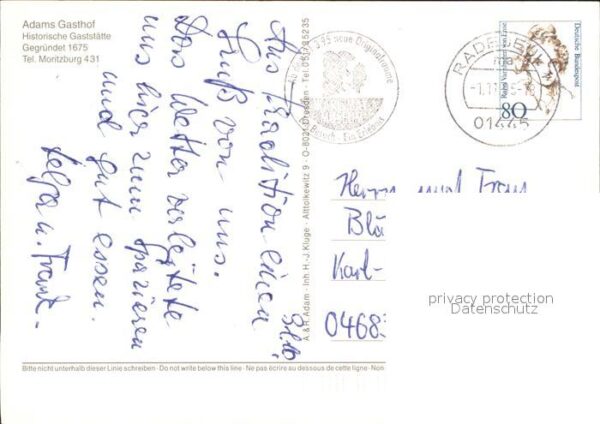 Adams Gasthof
Historische Gaststätte
Gegründet 1675
Tel. Moritzburg 431
Aus Tradition einen
Gruß von uns.
Das Wetter verleitete
uns hier zum spazieren
und gut essen.
Helga u. Frank.
31.10.
A.& R.Adam - Inh. H.-J. Kluge - Alttolkewitz 9 - O-8021 Dresden - Tel. 051/235235
neue Originalräume
Besuch - Ein Erlebnis
RADEBEUL
01445
Deutsche Bundespost
80
Herrn und Frau
Blä
Karl-
0468
privacy protection
Datenschutz
Bitte nicht unterhalb dieser Linie schreiben - Do not write below this line - Ne pas écrire au dessous de cette ligne - Non